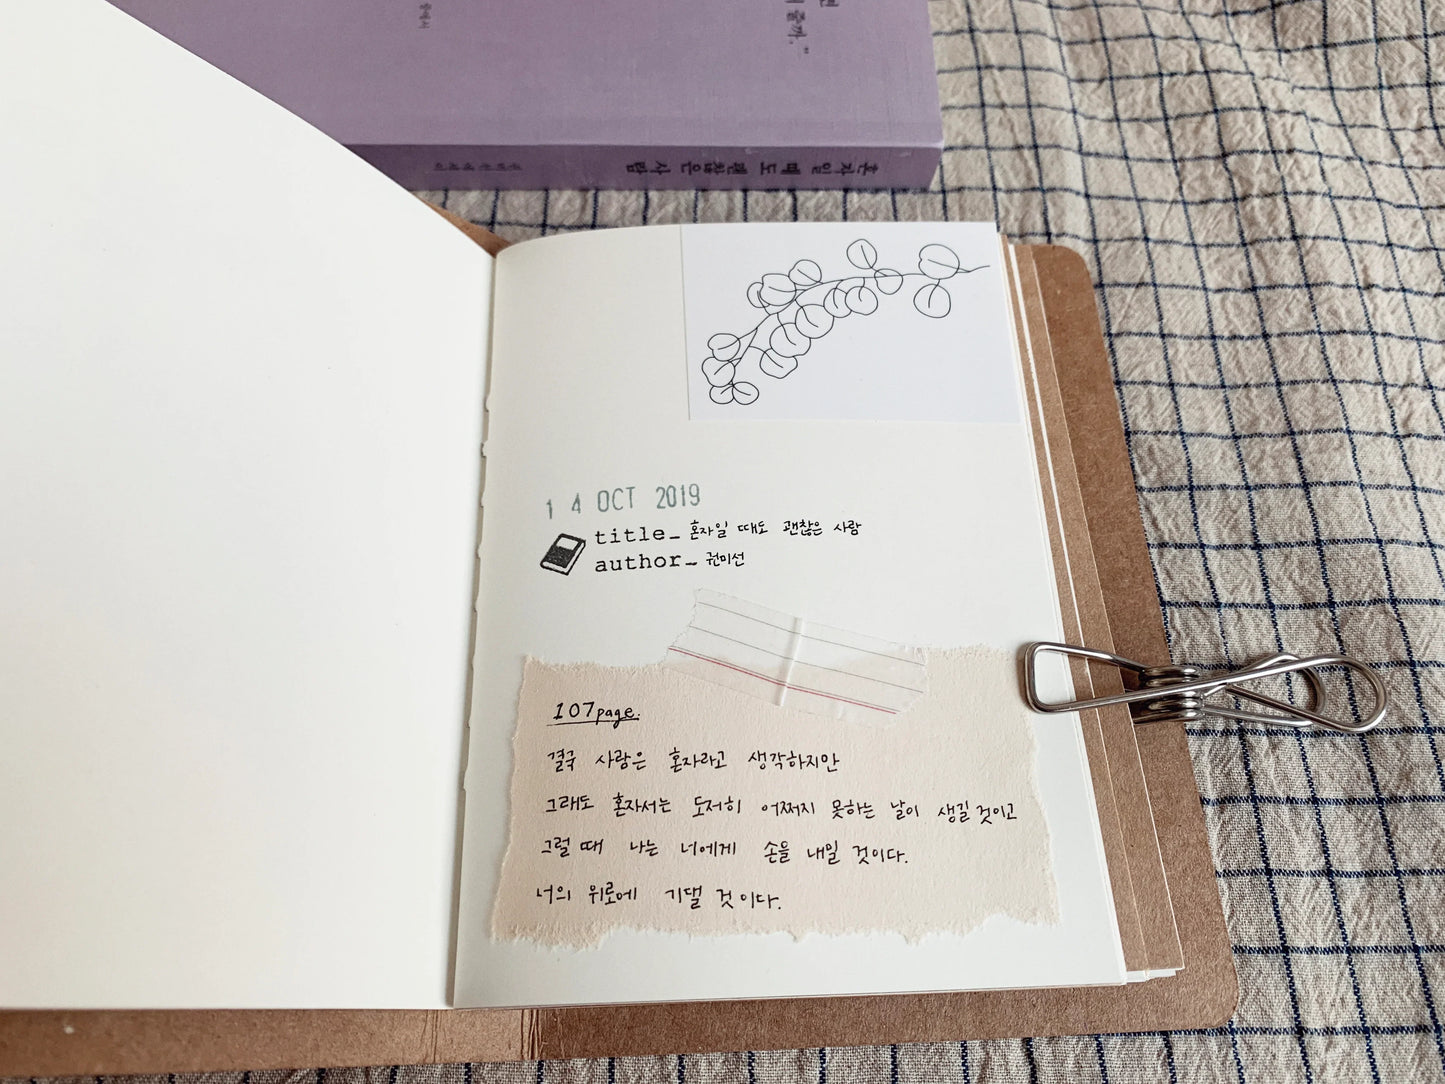 줄까."
혼자일 때도 괜찮은 사람
14 OCT 2019
title_ 혼자일 때도 괜찮은 사람
author_ 권미선
107page.
결국 사람은 혼자라고 생각하지만
그래도 혼자서는 도저히 어쩌지 못하는 날이 생길 것이고
그럴 때 나는 너에게 손을 내일 것이다.
너의 위로에 기댈 것이다.